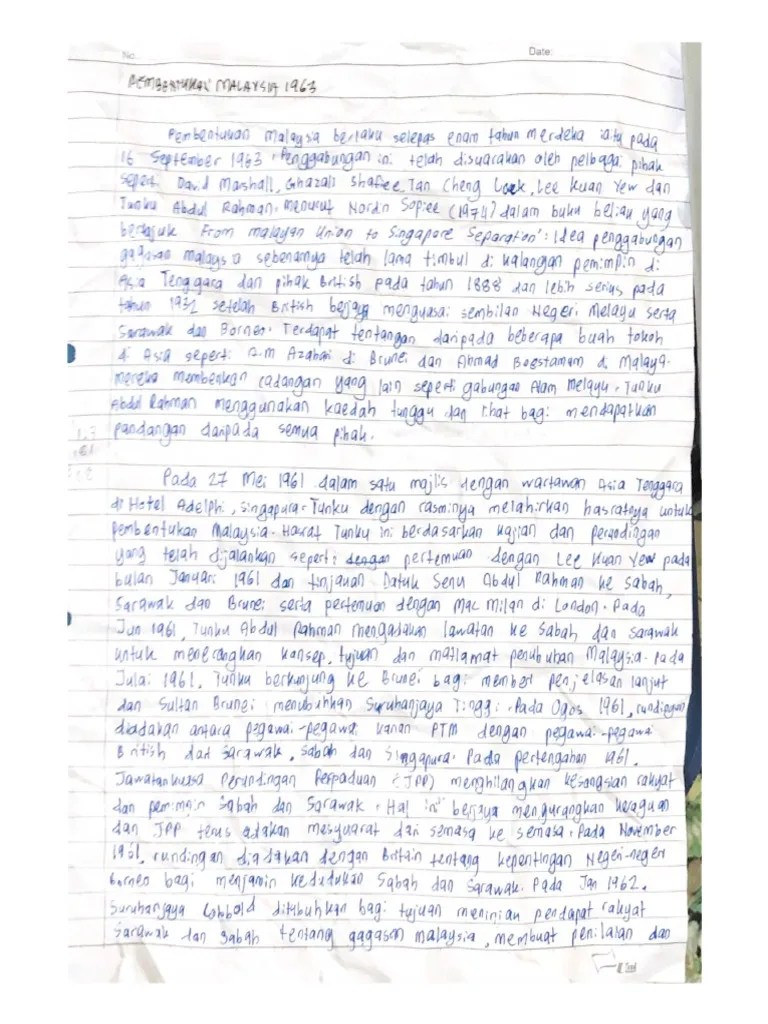 No.
Date:
PEMBENTUKAN MALAYSIA 1963
Pembentukan Malaysia berlaku selepas enam tahun merdeka iaitu pada
16 September 1963. Penggabungan ini telah disuarakan oleh pelbagai pihak
seperti David Marshall, Ghazali Shafiee, Tan Cheng Lock, Lee Kuan Yew dan
Tunku Abdul Rahman. Menurut Nordin Sopiee (1974) dalam buku beliau yang
bertajuk 'From Malayan Union to Singapore Separation': Idea penggabungan
gagasan Malaysia sebenarnya telah lama timbul di kalangan pemimpin di
Asia Tenggara dan pihak British pada tahun 1888 dan lebih serius pada
tahun 1932 setelah British berjaya menguasai sembilan Negeri Melayu serta
Sarawak dan Borneo. Terdapat tentangan daripada beberapa buah tokoh
di Asia seperti A.M Azahari di Brunei dan Ahmad Boestamam di Malaya.
Mereka memberikan cadangan yang lain seperti gabungan Alam Melayu. Tunku
Abdul Rahman menggunakan kaedah tunggu dan lihat bagi mendapatkan
pandangan daripada semua pihak.
Pada 27 Mei 1961 dalam satu majlis dengan wartawan Asia Tenggara
di Hotel Adelphi, Singapura. Tunku dengan rasminya melahirkan hasratnya untuk
pembentukan Malaysia. Hasrat Tunku ini berdasarkan kajian dan perundingan
yang telah dijalankan seperti dengan pertemuan dengan Lee Kuan Yew pada
bulan Januari 1961 dan tinjauan Datuk Senu Abdul Rahman ke Sabah,
Sarawak dan Brunei serta pertemuan dengan Mac Milan di London. Pada
Jun 1961, Tunku Abdul Rahman mengadakan lawatan ke Sabah dan Sarawak
untuk menerangkan konsep, tujuan dan matlamat penubuhan Malaysia. Pada
Julai 1961, Tunku berkunjung ke Brunei bagi memberi penjelasan lanjut
dan Sultan Brunei menubuhkan Suruhanjaya Tinggi. Pada Ogos 1961, rundingan
diadakan antara pegawai-pegawai kanan PTM dengan pegawai-pegawai
British dari Sarawak, Sabah dan Singapura. Pada pertengahan 1961,
Jawatankuasa Perundingan Perpaduan (JPP) menghilangkan kesangsian rakyat
dan pemimpin Sabah dan Sarawak. Hal ini berjaya mengurangkan keraguan
dan JPP terus adakan mesyuarat dari semasa ke semasa. Pada November
1961, rundingan diadakan dengan Britain tentang kepentingan Negeri-negeri
Borneo bagi menjamin kedudukan Sabah dan Sarawak. Pada Jan 1962.
Suruhanjaya Cobbold ditubuhkan bagi tujuan meninjau pendapat rakyat
Sarawak dan Sabah tentang gagasan Malaysia, membuat penilaian dan